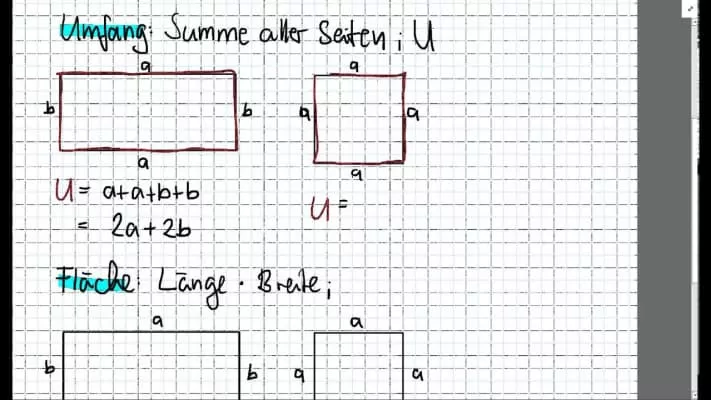 Umfang: Summe aller Seiten; U
a a
b b a a
a a
U = a+a+b+b
= 2a+2b
U =
Fläche: Länge · Breite;
a a
b b a a